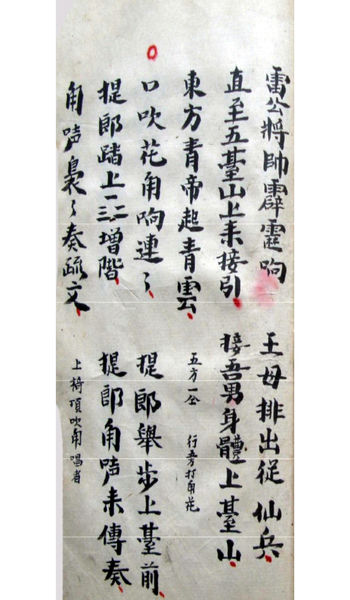 雷公將帥霹靂响 王母排出従仙兵
直至五臺山上来接引 接吾男身體上臺山
東方青帝起青雲 五方一仝 行旁打角花
口吹花角响連〻 提郎舉步上臺前
提郎踏上三增階 提郎角声来傳奏
角声裊〻奏疏文 上椅項吹角唱者